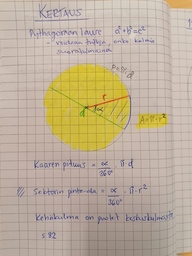 KERTAUS
Pythagoraan lause a²+b²=c²
- voidaan käyttää, onko kolmio
suorakulmainen
P=π·d
r
α
d
A=π·r²
Kaaren pituus = α/360° · π·d
Sektorin pinta-ala = α/360° · π·r²
Kehäkulma on puolet keskuskulmasta
s.82